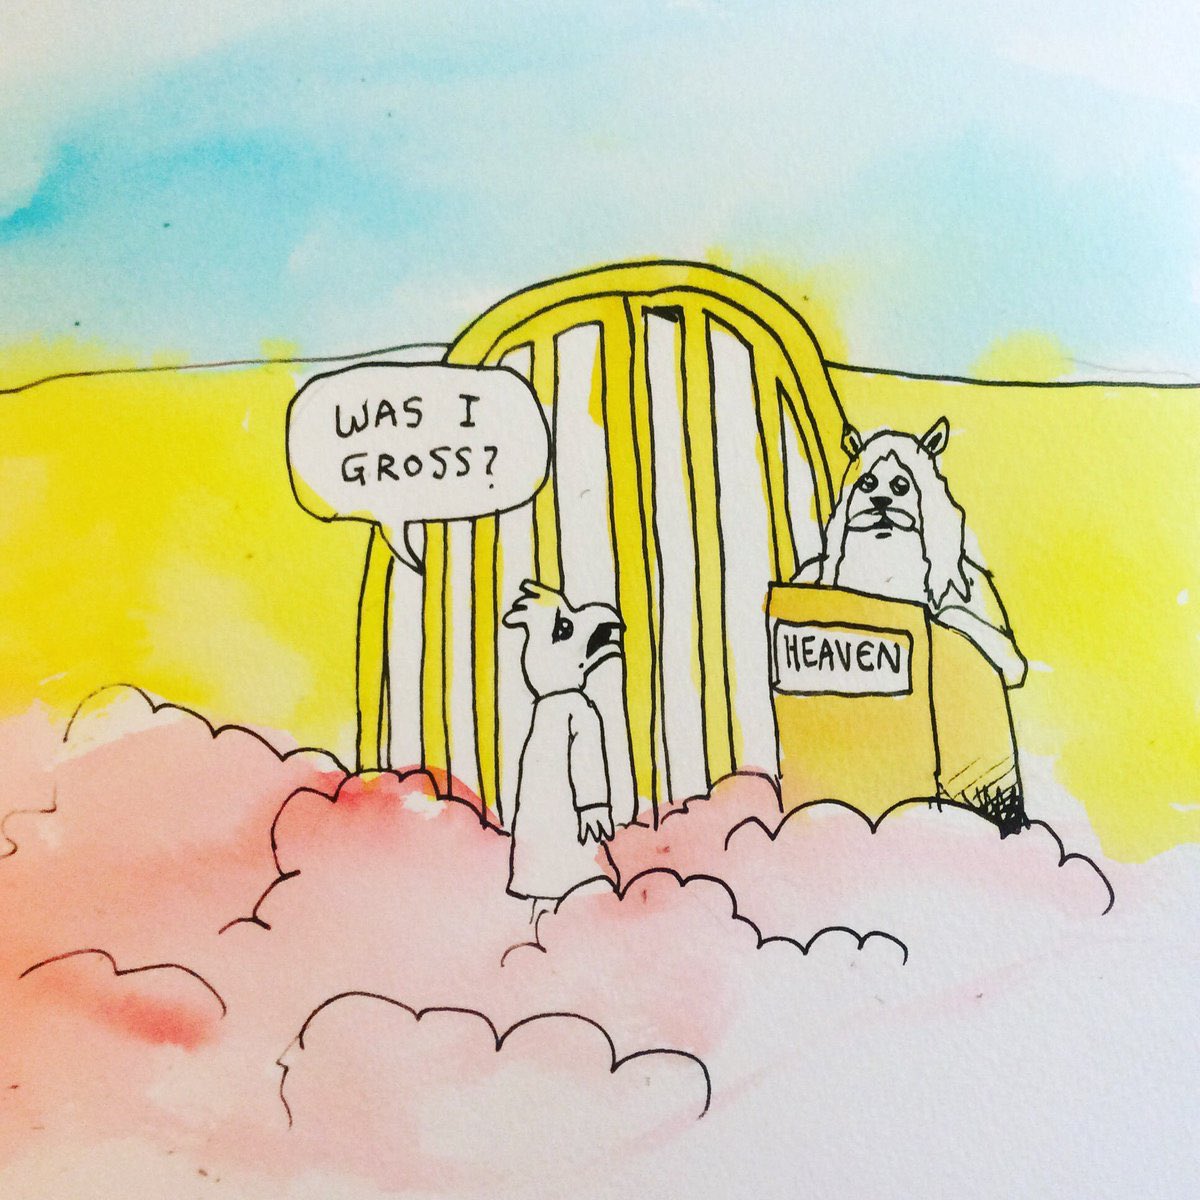 WAS I
GROSS?
HEAVEN